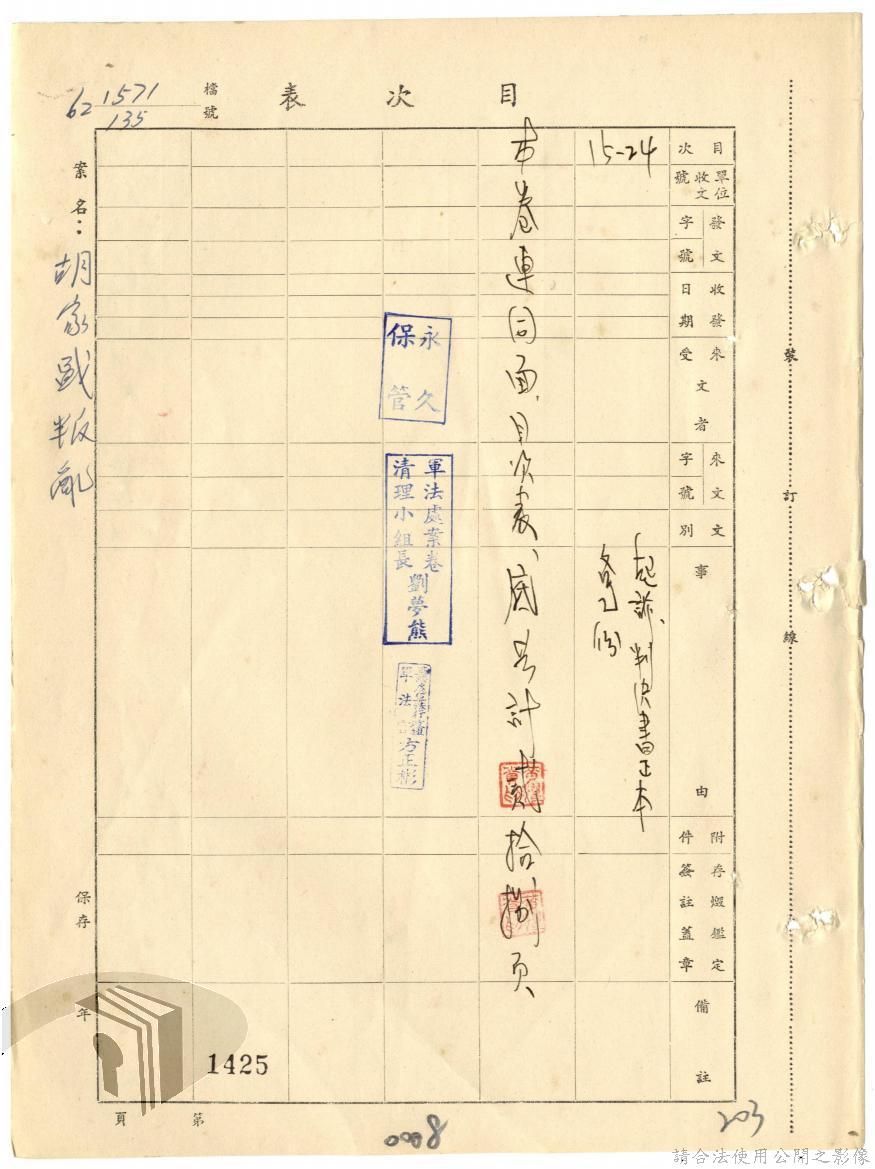 目次表
檔號
62 1571
135
目次
單位收文號
發文字號
收發日期
來文受文者
來文字號
文別
事由
附件
存燬鑑定簽註蓋章
備註
15-24
起訴、判決書正本
各乙份
本卷連同面、目次表、底共計貳拾捌頁
永久
保管
軍法處案卷
清理小組長劉夢熊
軍法官方正彬
案名：胡家 叛亂
保存 年
1425
第 頁
0008
203
裝訂線
請合法使用公開之影像